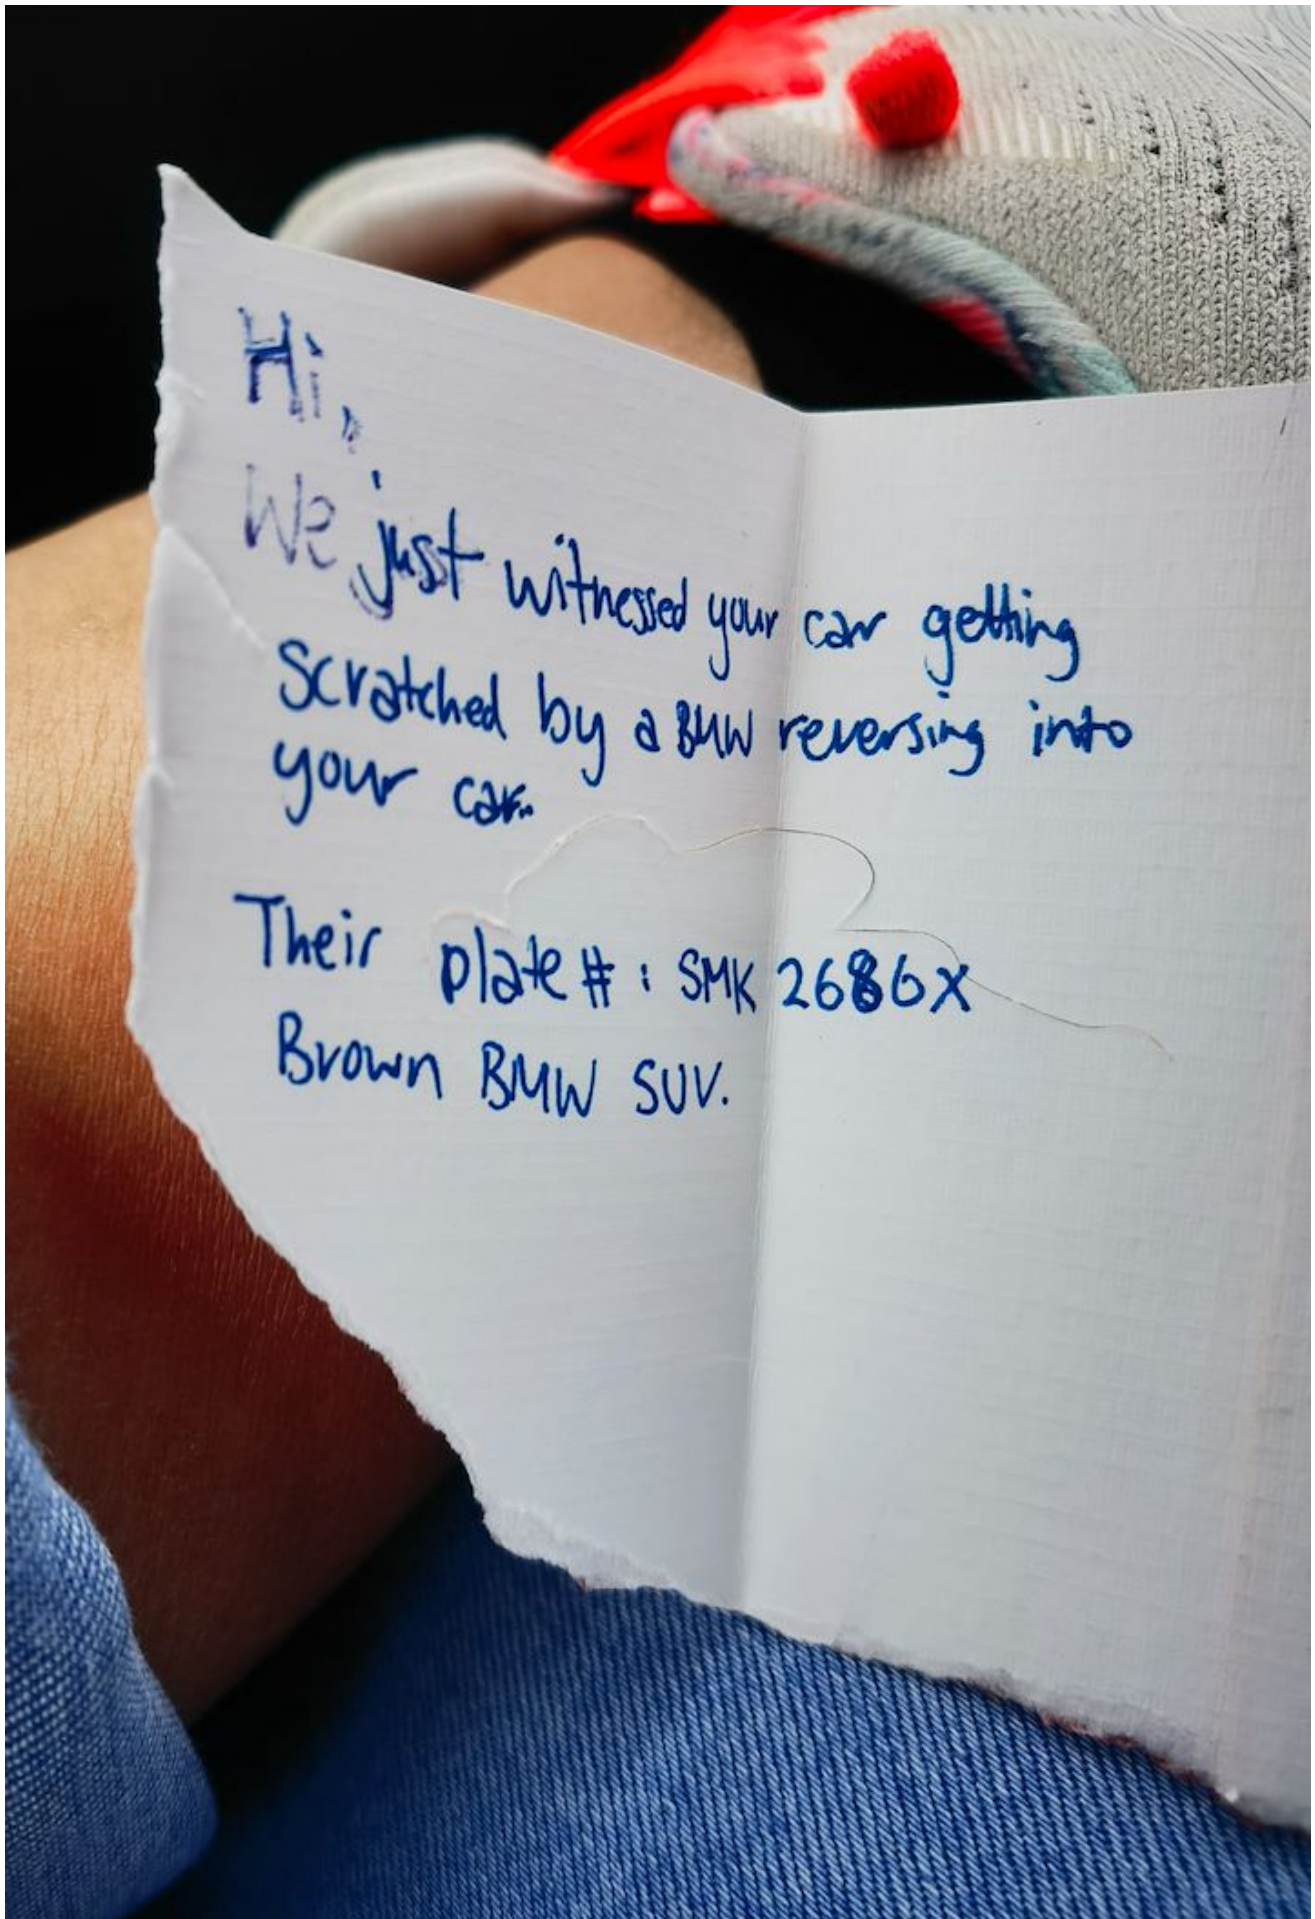 Hi,
We just witnessed your car getting
scratched by a BMW reversing into
your car.
Their plate # : SMK 2686X
Brown BMW SUV.